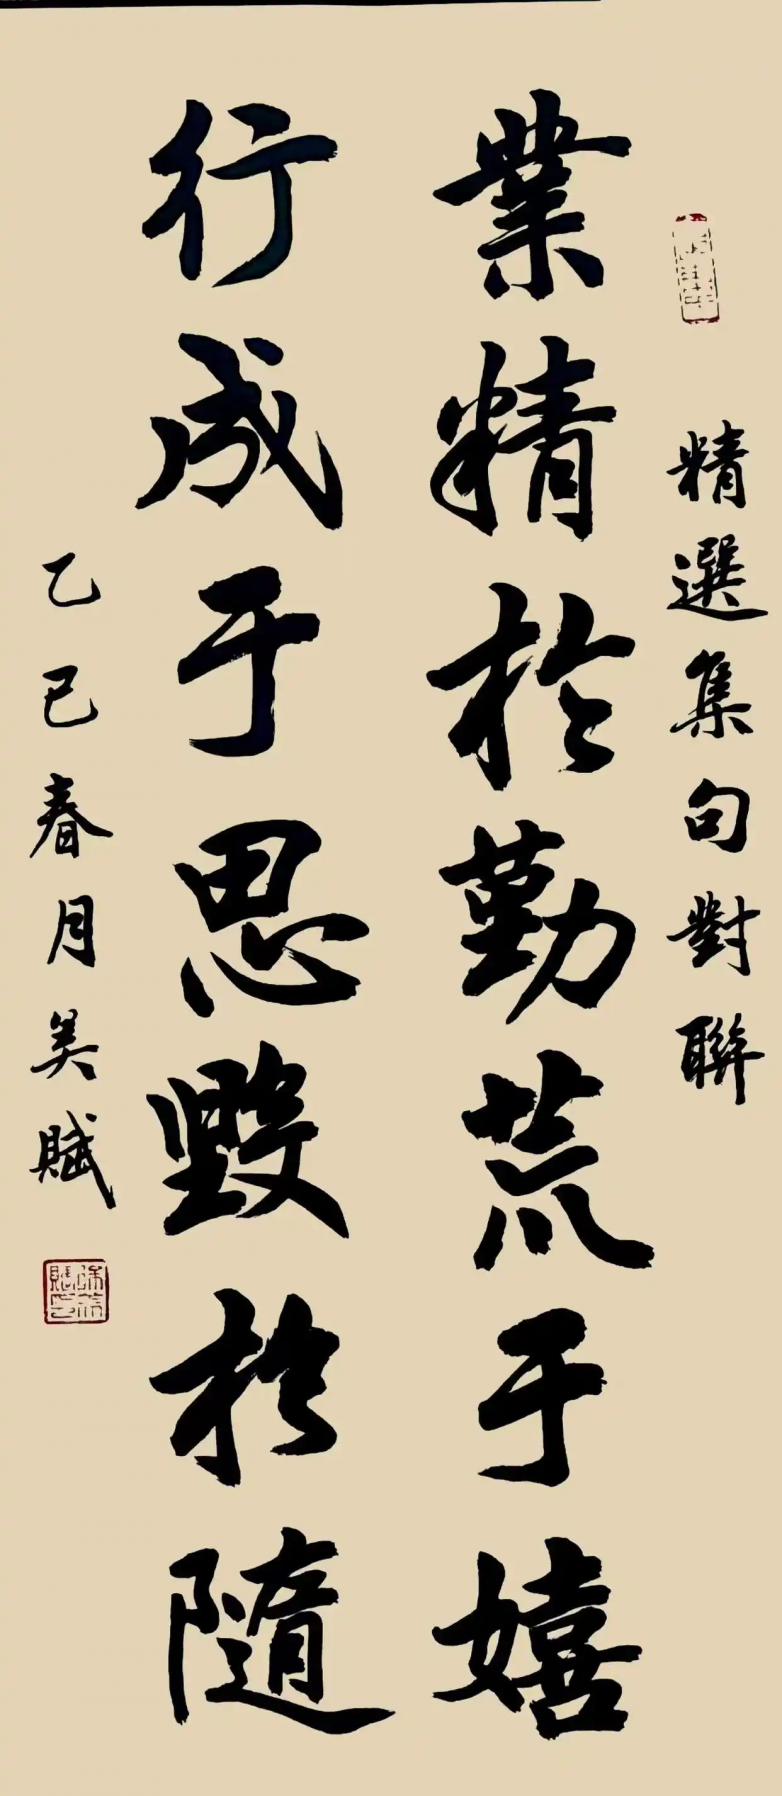 精選集句對聯
業精於勤荒于嬉
行成于思毀於隨
乙巳春月美賦